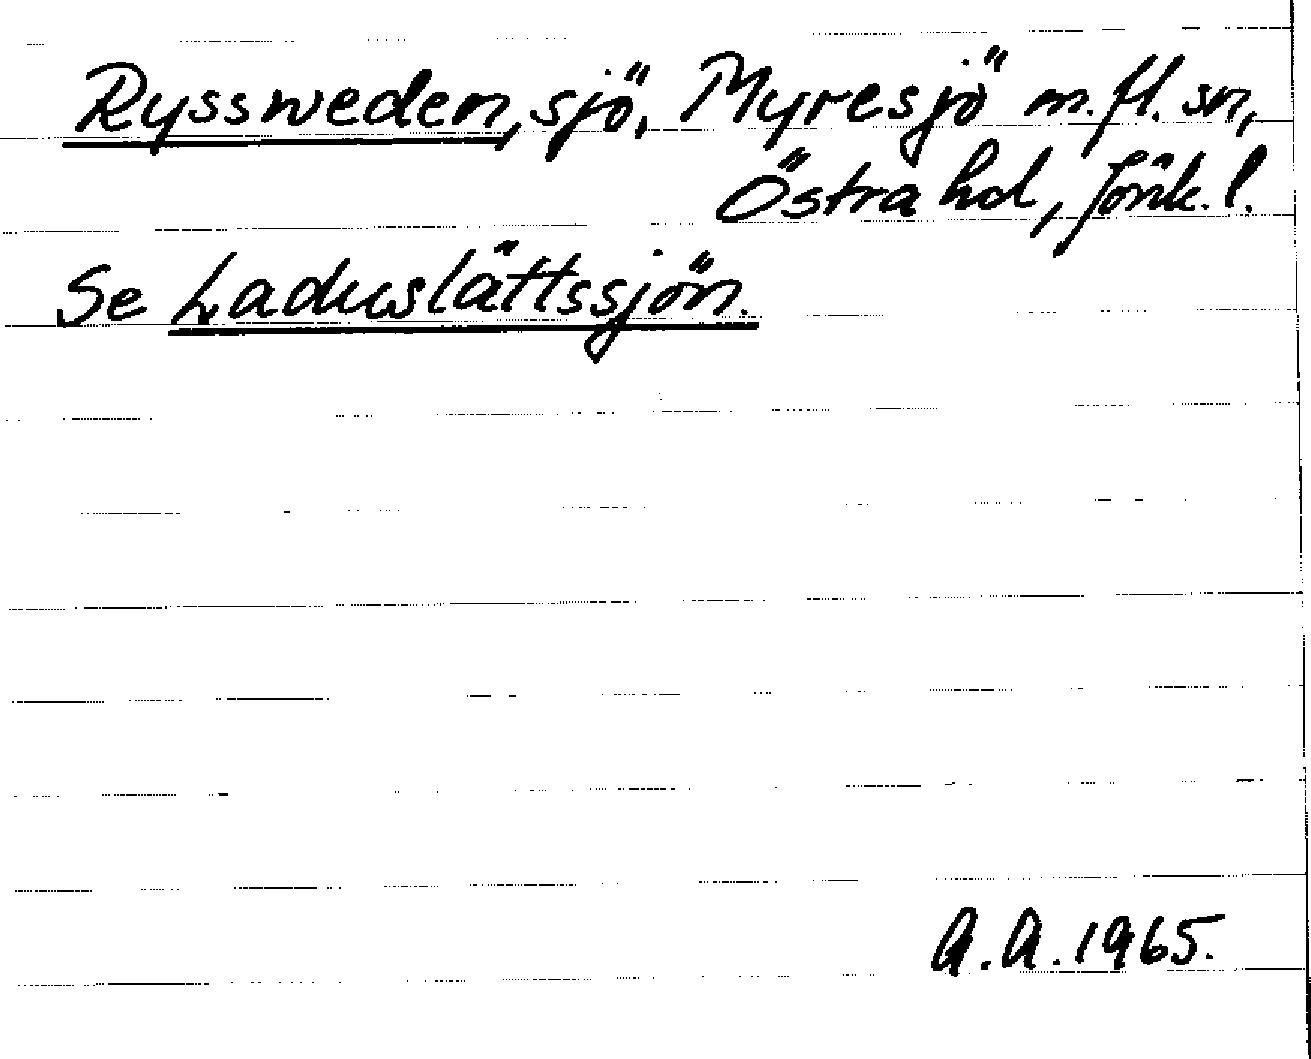 Ryssweden, sjö, Myresjö m.fl. sn,
Östra hd, Jönk. l.
Se Laduslättssjön.
A.A. 1965.